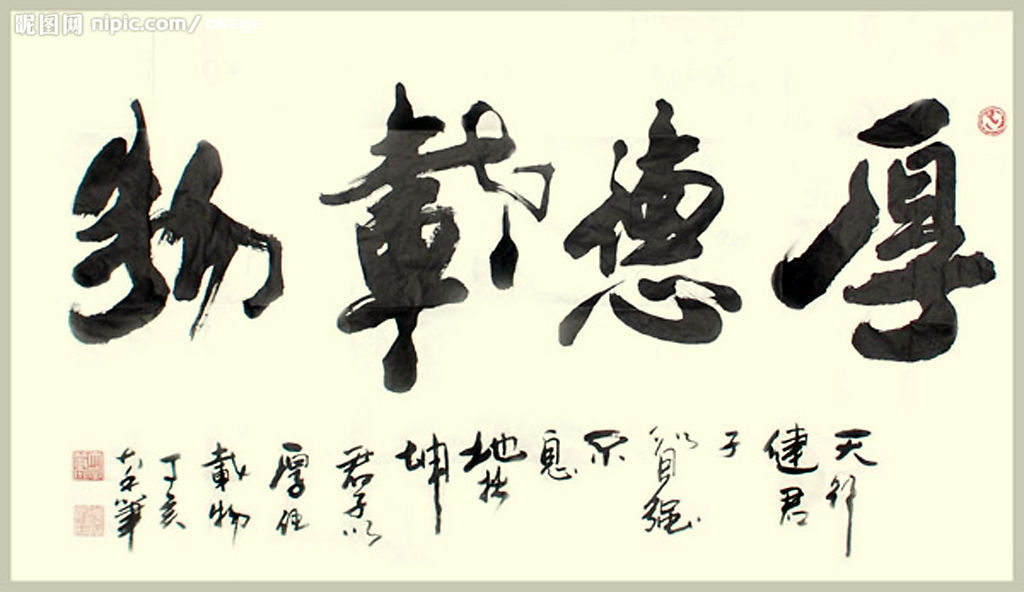 昵图网 nipic.com/okeye
厚德載物
天行
健君
子
以自强
不
息
地势
坤
君子以
厚德
載物
丁亥
筆